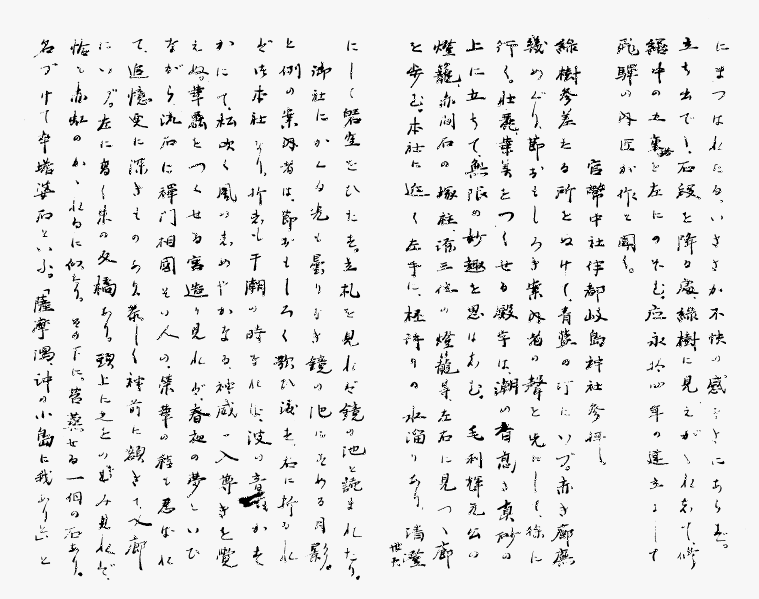 にまつはれたる、いささか不快の感なきにあらず。
立ち出でし、石段を降る處、緑樹に見えがくれして、修
繕中の五重塔を左にのぞむ。應永拾四年の建立にして
飛騨の内匠が作と聞く。
官幣中社伊都岐島神社参拝。
緑樹参差たる所をぬけて、青藍の汀にいづ。赤き廊廡
幾めぐり、節おもしろき案内者の聲を先にして、徐に
行く。壮麗華美をつくせる殿宇は、潮の香高き真砂の
上に立ちて、無限の妙趣を思はしむ。毛利輝元公の
燈籠、赤間石の 源三位の燈籠等、左右に見つつ廊
を歩む。本社に近く左手に、 の水溜りあり、清澄
にして 空をひたす。立札を見れば鏡の池と読まれたり。
御社にかくる光も曇りなき鏡の池にすめる月影。
と例の案内者は、節おもしろく歌ひ渡す。右に折るれ
ば本社なり。折しも干潮の時なれば、波の音 かす
かにて、松吹く風のしめやかなる、神威一入尊きを覚
えぬ。華麗をつくせる宮造り見れば、春夜の夢といひ
ながら、流石に禅門相國その人の、栄華の程も忍ばれ
て、追憶更に深きものあり。恭しく神前に額きて、 廊
にいづ。左に高く朱の反橋あり。頭上にそをのぞみ見れば、
恰も赤虹のかかれるに似たり。その下に、苔蒸せる一個の石あり。
名づけて卒塔婆石といふ。「薩摩潟沖の小島に我ありと」と